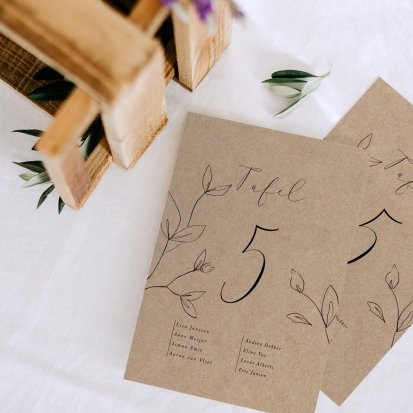 Tafel
5
Lisa Janssen
Anne Meijer
Simon Smit
Aaron van Vliet
Andrea Bakker
Elise Vos
Lucas Alberts
Eric Jansen
Taf
5